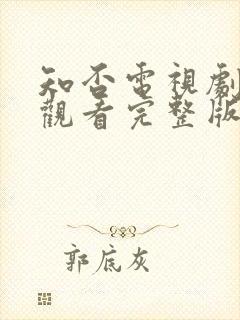 知否電視劇
觀看完整版
郭底灰